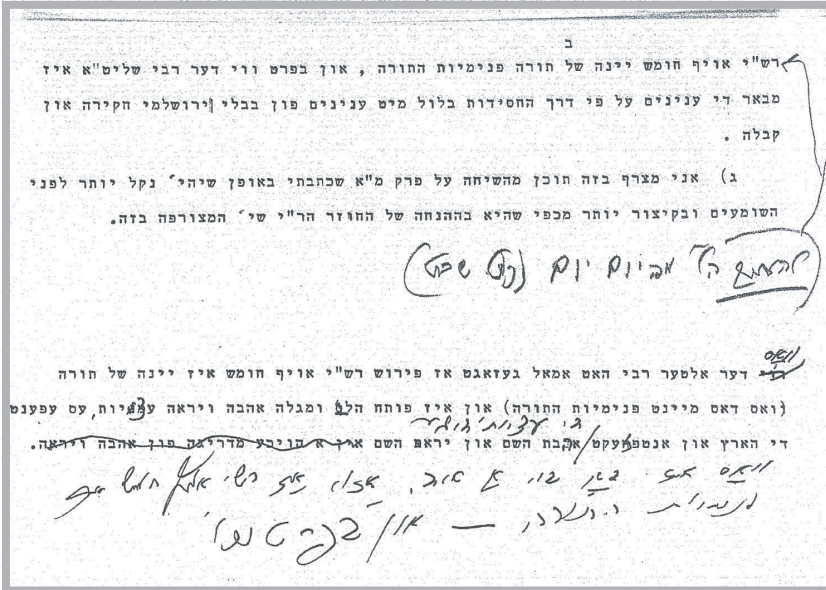 ב
רש"י אויף חומש יינה של תורה פנימיות התורה , און בפרט ווי דער רבי שליט"א איז
מבאר די ענינים על פי דרך החסידות בלול מיט ענינים פון בבלי ירושלמי חקירה און
קבלה .
ג) אני מצרף בזה תוכן מהשיחה על פרק מ"א שכתבתי באופן שיהי׳ נקל יותר לפני
השומעים ובקיצור יותר מכפי שהיא בההנחה של החוזר הר"י שי׳ המצורפה בזה.
מהיום יום
וואס
דער אלטער רבי האט אמאל געזאגט אז פירוש רש"י אויף חומש איז יינה של תורה
(וואס דאס מיינט פנימיות התורה) און איז פותח הלב ומגלה אהבה ויראה עצמיות, עס עפענט
די עצמיות'דיגע
די הארץ און אנטפלעקט אהבת השם און יראת השם אין א הויכע מדריגה פון אהבה ויראה.
וואס איז ביי א איד, אזוי איז רש"י אויף חומש
פנימיות התורה — און בפרט